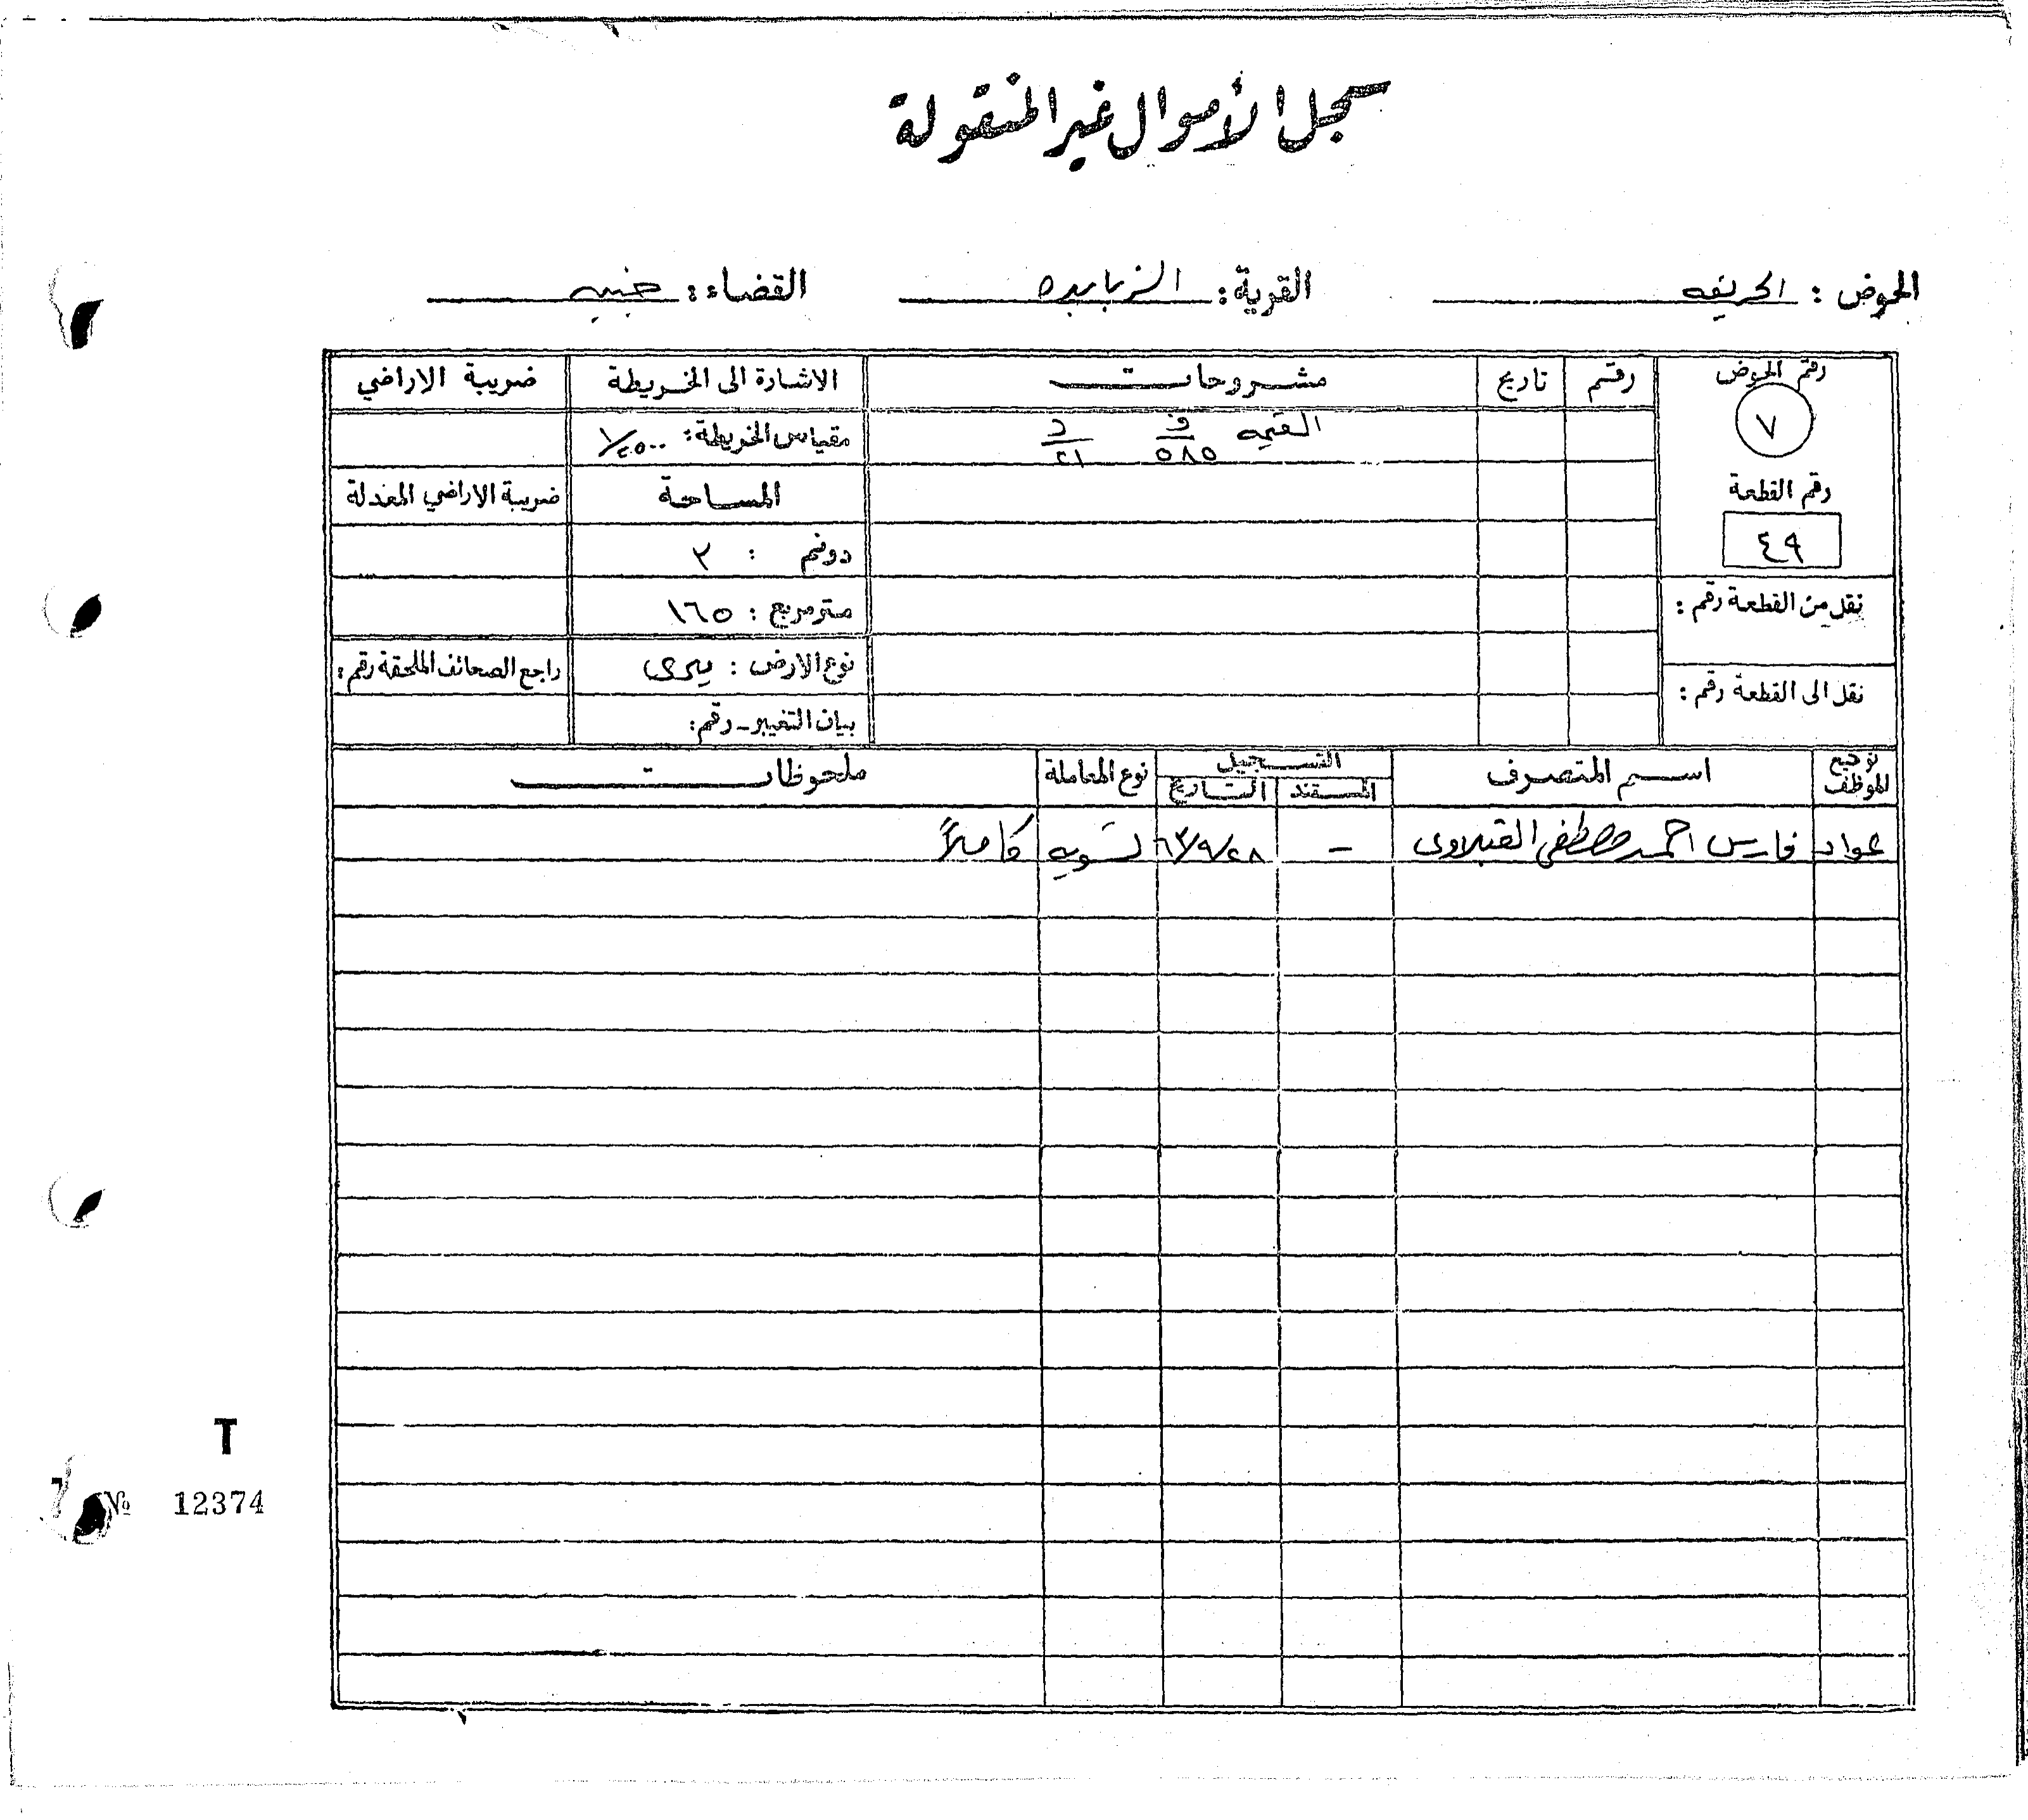 سجل الأموال غير المنقولة
الحوض : الحريقه القرية : الزبابده القضاء : جنين
رقم الحوض رقم تاريخ مشروحات الاشارة الى الخريطة ضريبة الاراضي
٧ القيمه ف ٥٨٥ د ٢١ مقياس الخريطة : ١/٢٥٠٠
رقم القطعة المساحة ضريبة الاراضي المعدلة
٤٩ دونم : ٢
نقل من القطعة رقم : متر مربع : ١٦٥
نوع الارض : ميرى راجع الصحائف الملحقة رقم :
نقل الى القطعة رقم : بيان التغيير - رقم :
توقيع الموظف اسم المتصرف التسجيل نوع المعاملة ملحوظات
المستند التاريخ
عواد فارس احمد مصطفى القبلاوى - ٦٣/٩/٢٨ تسويه كاملاً
T
№ 12374